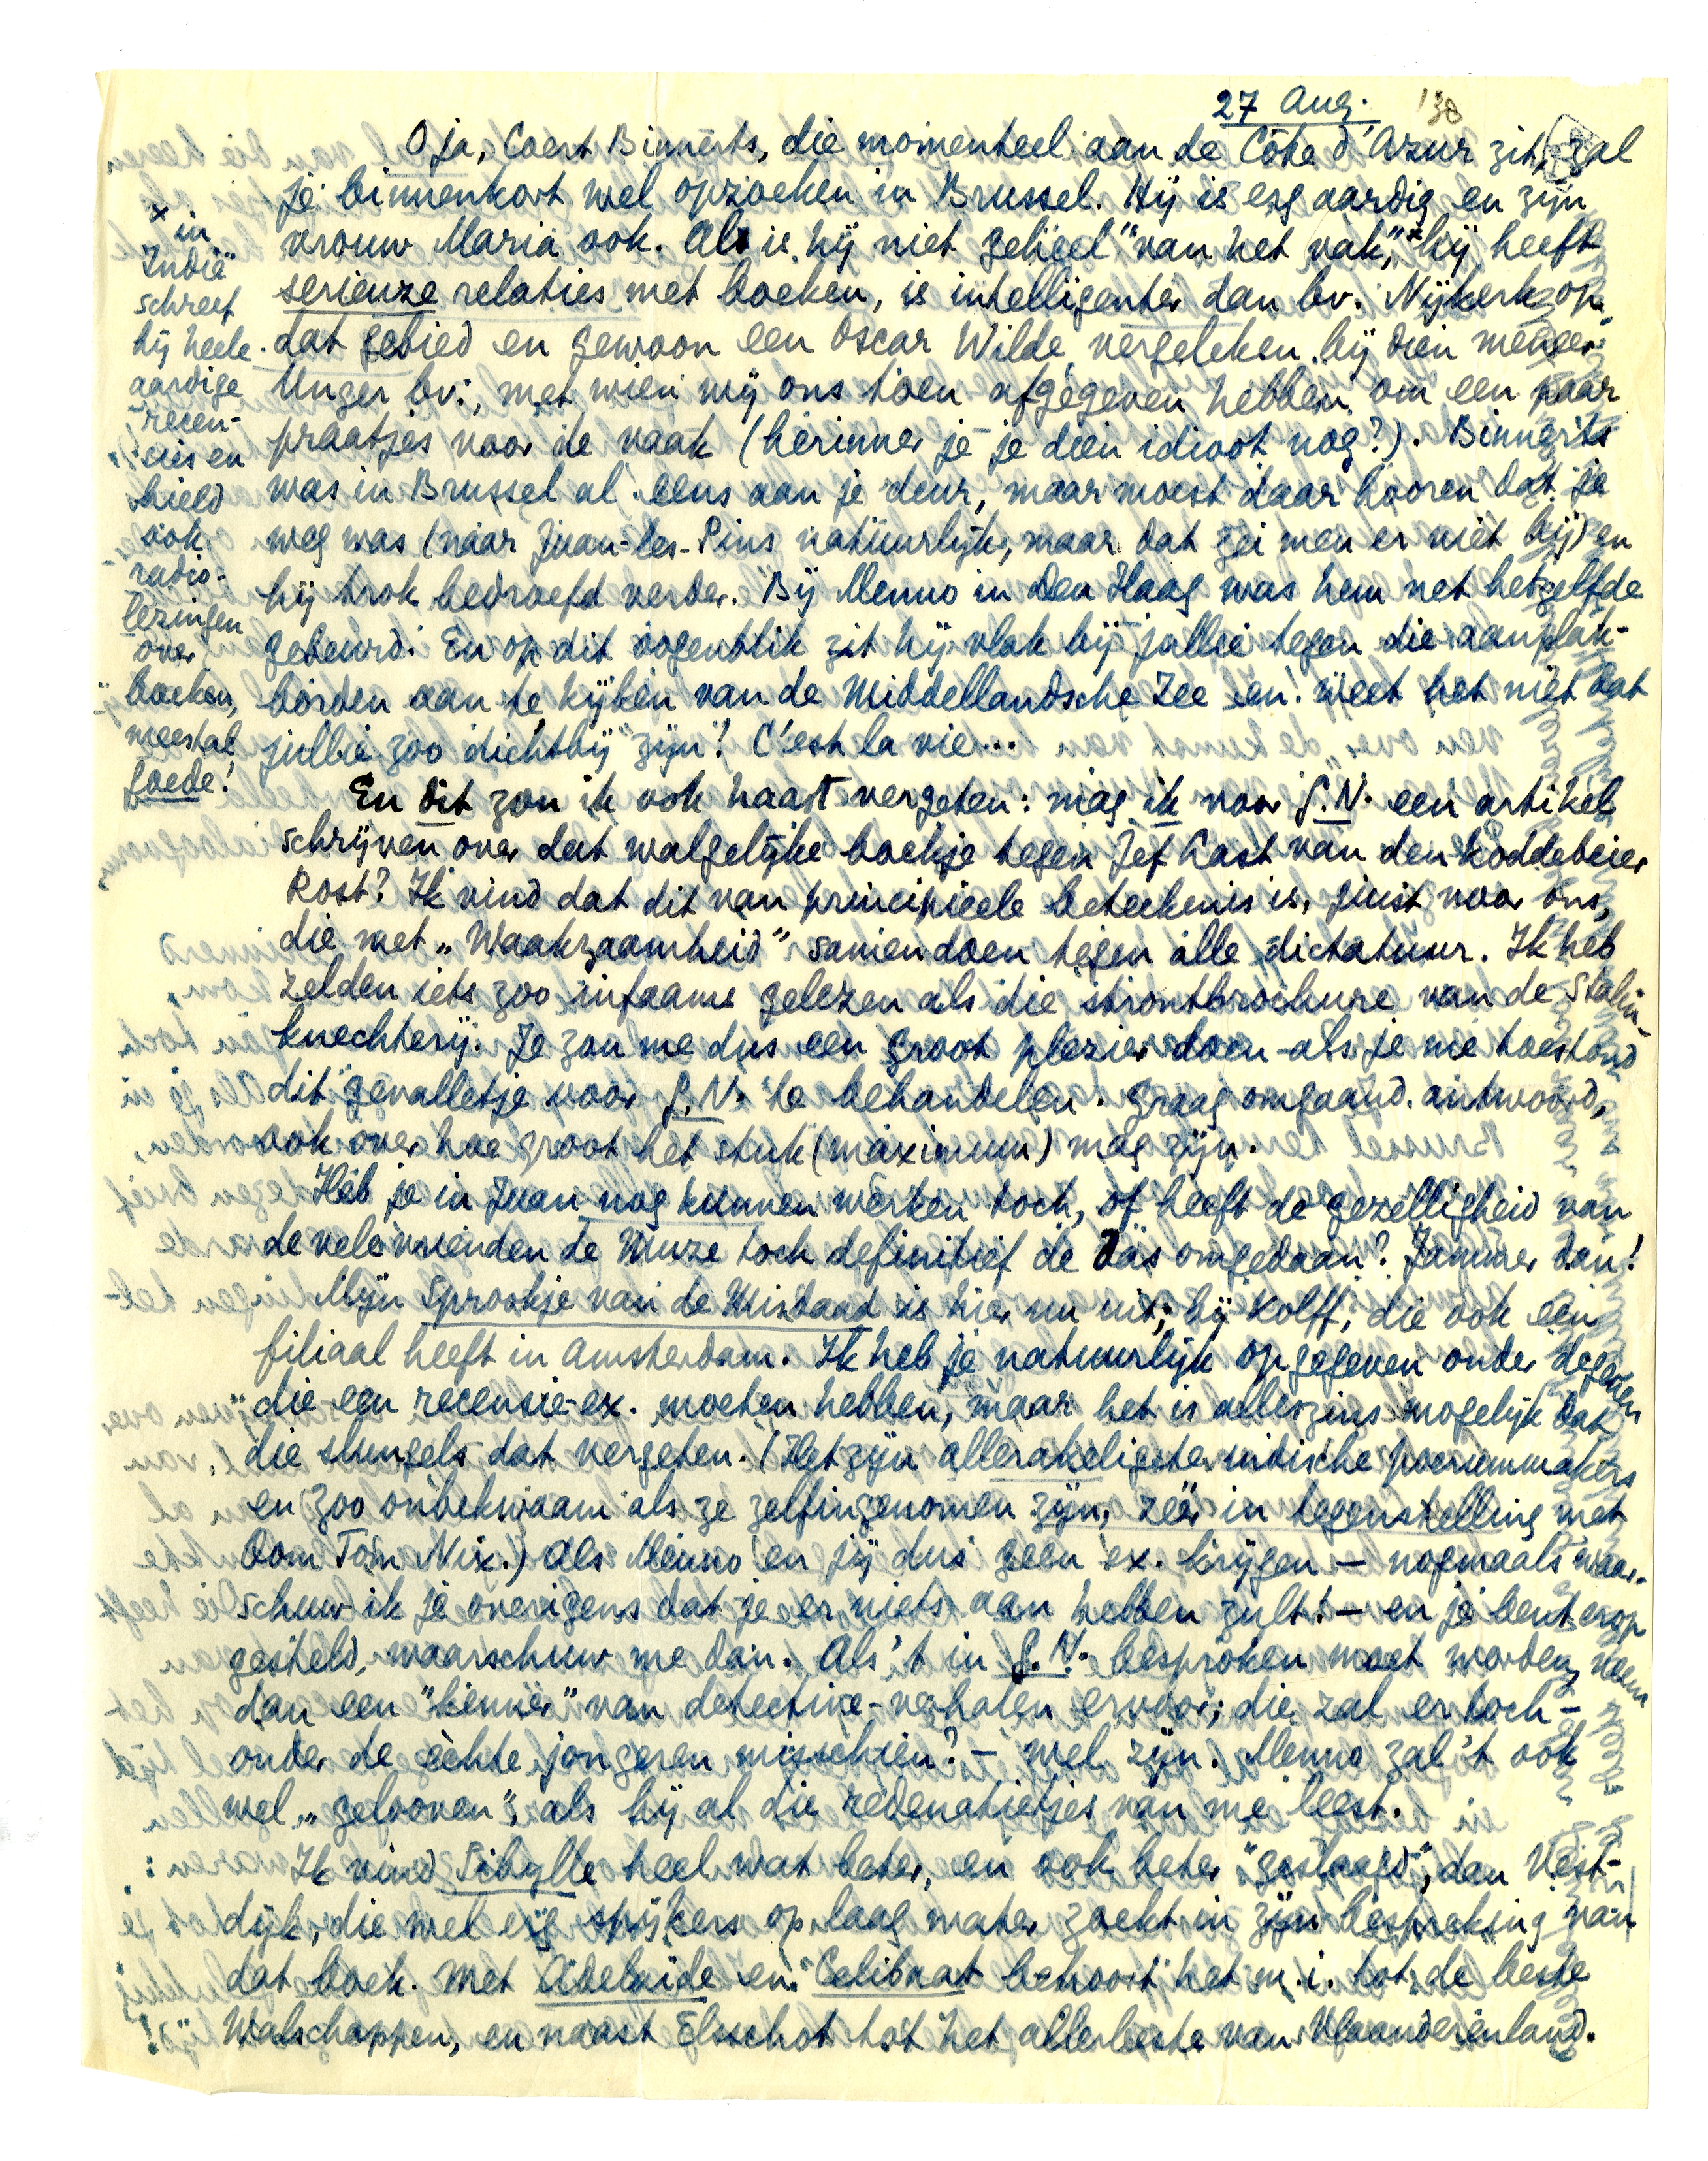 27 Aug. '38
O ja, Coert Binnerts, die momenteel aan de Côte d'Azur zit, zal
je binnenkort wel opzoeken in Brussel. Hij is erg aardig en zijn
vrouw Maria ook. Al is hij niet geheel "van het vak",x hij heeft
serieuze relaties met boeken, is intelligenter dan bv. Nijkerk op
dat gebied en gewoon een Oscar Wilde vergeleken bij dien meneer
Unger bv., met wien wij ons toen afgegeven hebben om een paar
praatjes voor de vaak (herinner je je dien idioot nog?). Binnerts
was in Brussel al eens aan je deur, maar moest daar hooren dat je
weg was (naar Juan-les-Pins natuurlijk, maar dat zei men er niet bij) en
hij trok bedroefd verder. Bij Menno in Den Haag was hem net hetzelfde
gebeurd. En op dit oogenblik zit hij vlak bij jullie tegen die aanplak-
borden aan te kijken van de Middellandsche Zee en weet het niet dat
jullie zoo dichtbij zijn! C'est la vie...
x in
Indië
schreef
hij heele
aardige
recen-
sies en
hield
ook
radio-
lezingen
over
boeken,
meestal
goede!
En dit zou ik ook haast vergeten: mag ik voor G.N. een artikel
schrijven over dat walgelijke boekje tegen Jef Last van den koddebeier
Rost? Ik vind dat dit van principieele beteekenis is, juist voor ons,
die met „Waakzaamheid" samendoen tegen alle dictatuur. Ik heb
zelden iets zoo infaams gelezen als die strontbrochure van de Stalin-
knechterij. Je zou me dus een groot plezier doen als je me toestond
dit gevalletje voor G.N. te behandelen. Graag omgaand antwoord,
ook over hoe groot het stuk (maximum) mag zijn.
Heb je in Juan nog kunnen werken toch, of heeft de gezelligheid van
de vele vrienden de Muze toch definitief de das omgedaan? Jammer dan!
Mijn Sprookje van de Misdaad is hier nu uit, bij Kolff, die ook een
filiaal heeft in Amsterdam. Ik heb je natuurlijk opgegeven onder degenen
die een recensie-ex. moeten hebben, maar het is alleszins mogelijk dat
die slungels dat vergeten. (Het zijn allerakeligste indische poerimmakers
en zoo onbekwaam als ze zelfingenomen zijn, zéér in tegenstelling met
Oom Tom Nix.) Als Menno en jij dus geen ex. krijgen — nogmaals waar-
schuw ik je overigens dat je er niets aan hebben zult! — en je bent erop
gesteld, waarschuw me dan. Als 't in G.N. besproken moet worden, neem
dan een "kenner" van detective-verhalen ervoor; die zal er toch -
onder de èchte jongeren misschien? - wel zijn. Menno zal 't ook
wel „gelooven", als hij al die redenatietjes van me leest.
Ik vind Sibylle heel wat beter, en ook beter "geslaagd", dan Vest-
dijk, die wel erg spijkers op laag water zoekt in zijn bespreking van
dat boek. Met Adelaide en Celibaat behoort het m.i. tot de beste
Walschappen, en naast Elsschot tot het allerbeste van Vlaanderenland.